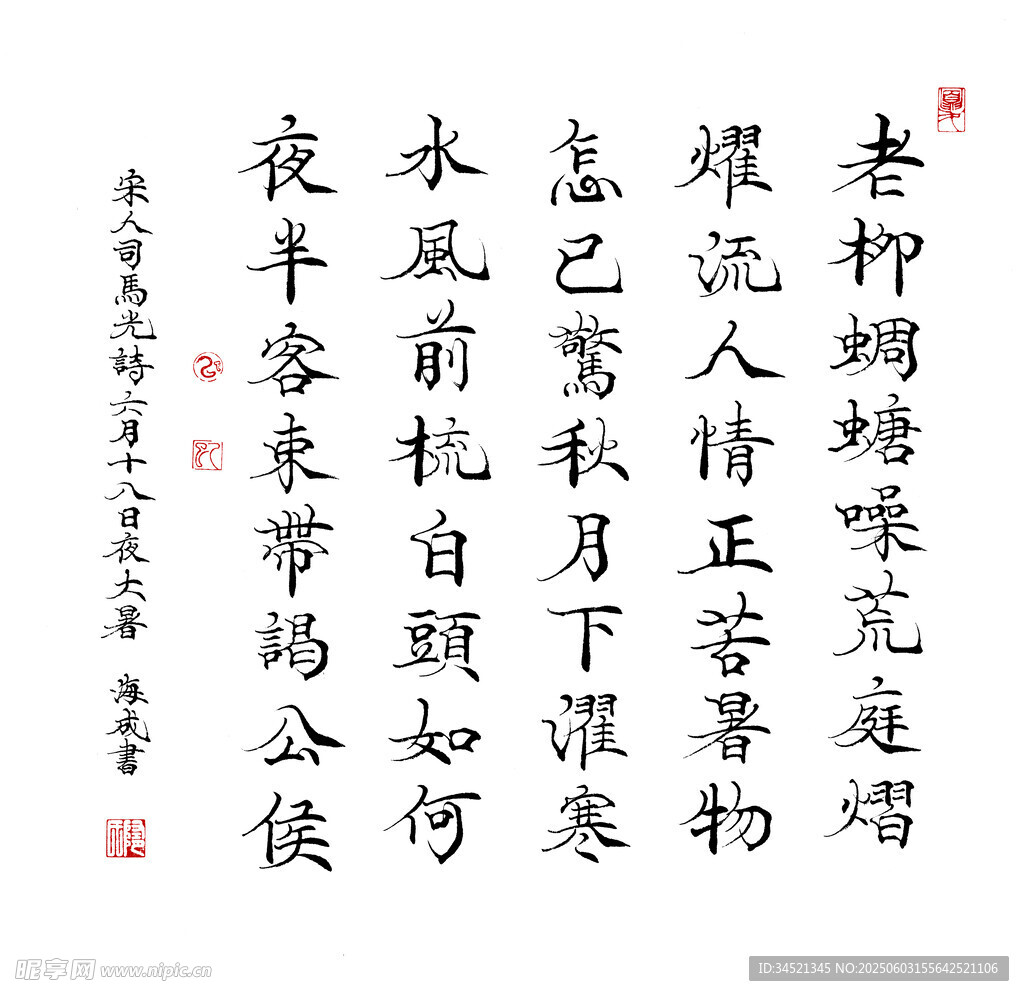 老柳蜩螗噪荒庭熠
燿流人情正苦暑物
怎已驚秋月下濯寒
水風前梳白頭如何
夜半客束帶謁公侯
宋人司馬光詩六月十八日夜大暑 海成書
昵享网 www.nipic.cn
ID:34521345 NO:20250603155642521106